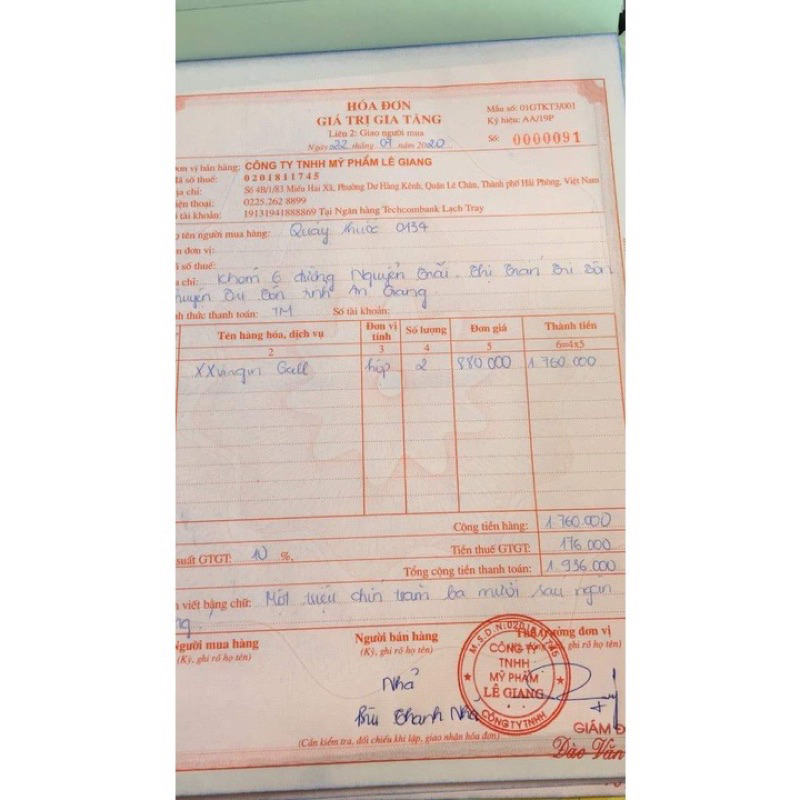 HÓA ĐƠN
GIÁ TRỊ GIA TĂNG
Liên 2: Giao người mua
Ngày 22 tháng 07 năm 2020
Mẫu số: 01GTKT3/001
Ký hiệu: AA/19P
Số: 0000091
Đơn vị bán hàng: CÔNG TY TNHH MỸ PHẨM LÊ GIANG
số thuế: 0201811745
chỉ: Số 4B/1/83 Miếu Hai Xã, Phường Dư Hàng Kênh, Quận Lê Chân, Thành phố Hải Phòng, Việt Nam
thoại: 0225.262 8899
tài khoản: 19131941888869 Tại Ngân hàng Techcombank Lạch Tray
tên người mua hàng: Quầy thuốc 0134
đơn vị:
số thuế:
chỉ: Khóm 6 đường Nguyễn Trãi. Thị Trấn Tri Tôn
huyện Tri Tôn tỉnh An Giang
thức thanh toán: TM Số tài khoản:
Tên hàng hóa, dịch vụ Đơn vị tính Số lượng Đơn giá Thành tiền
2 3 4 5 6=4x5
XXvirgin Gall hộp 2 880.000 1.760.000
Cộng tiền hàng: 1.760.000
suất GTGT: 10 %, Tiền thuế GTGT: 176.000
Tổng cộng tiền thanh toán: 1.936.000
viết bằng chữ: Một triệu chín trăm ba mươi sáu ngàn
Người mua hàng Người bán hàng Thủ trưởng đơn vị
(Ký, ghi rõ họ tên) (Ký, ghi rõ họ tên)
M.S.D.N:0201811745
CÔNG TY
TNHH
MỸ PHẨM
LÊ GIANG
CÔNG TY TNHH
Nhả
Bùi Thanh Nhả
GIÁM Đ
Đào Văn
(Cần kiểm tra, đối chiếu khi lập, giao nhận hóa đơn)